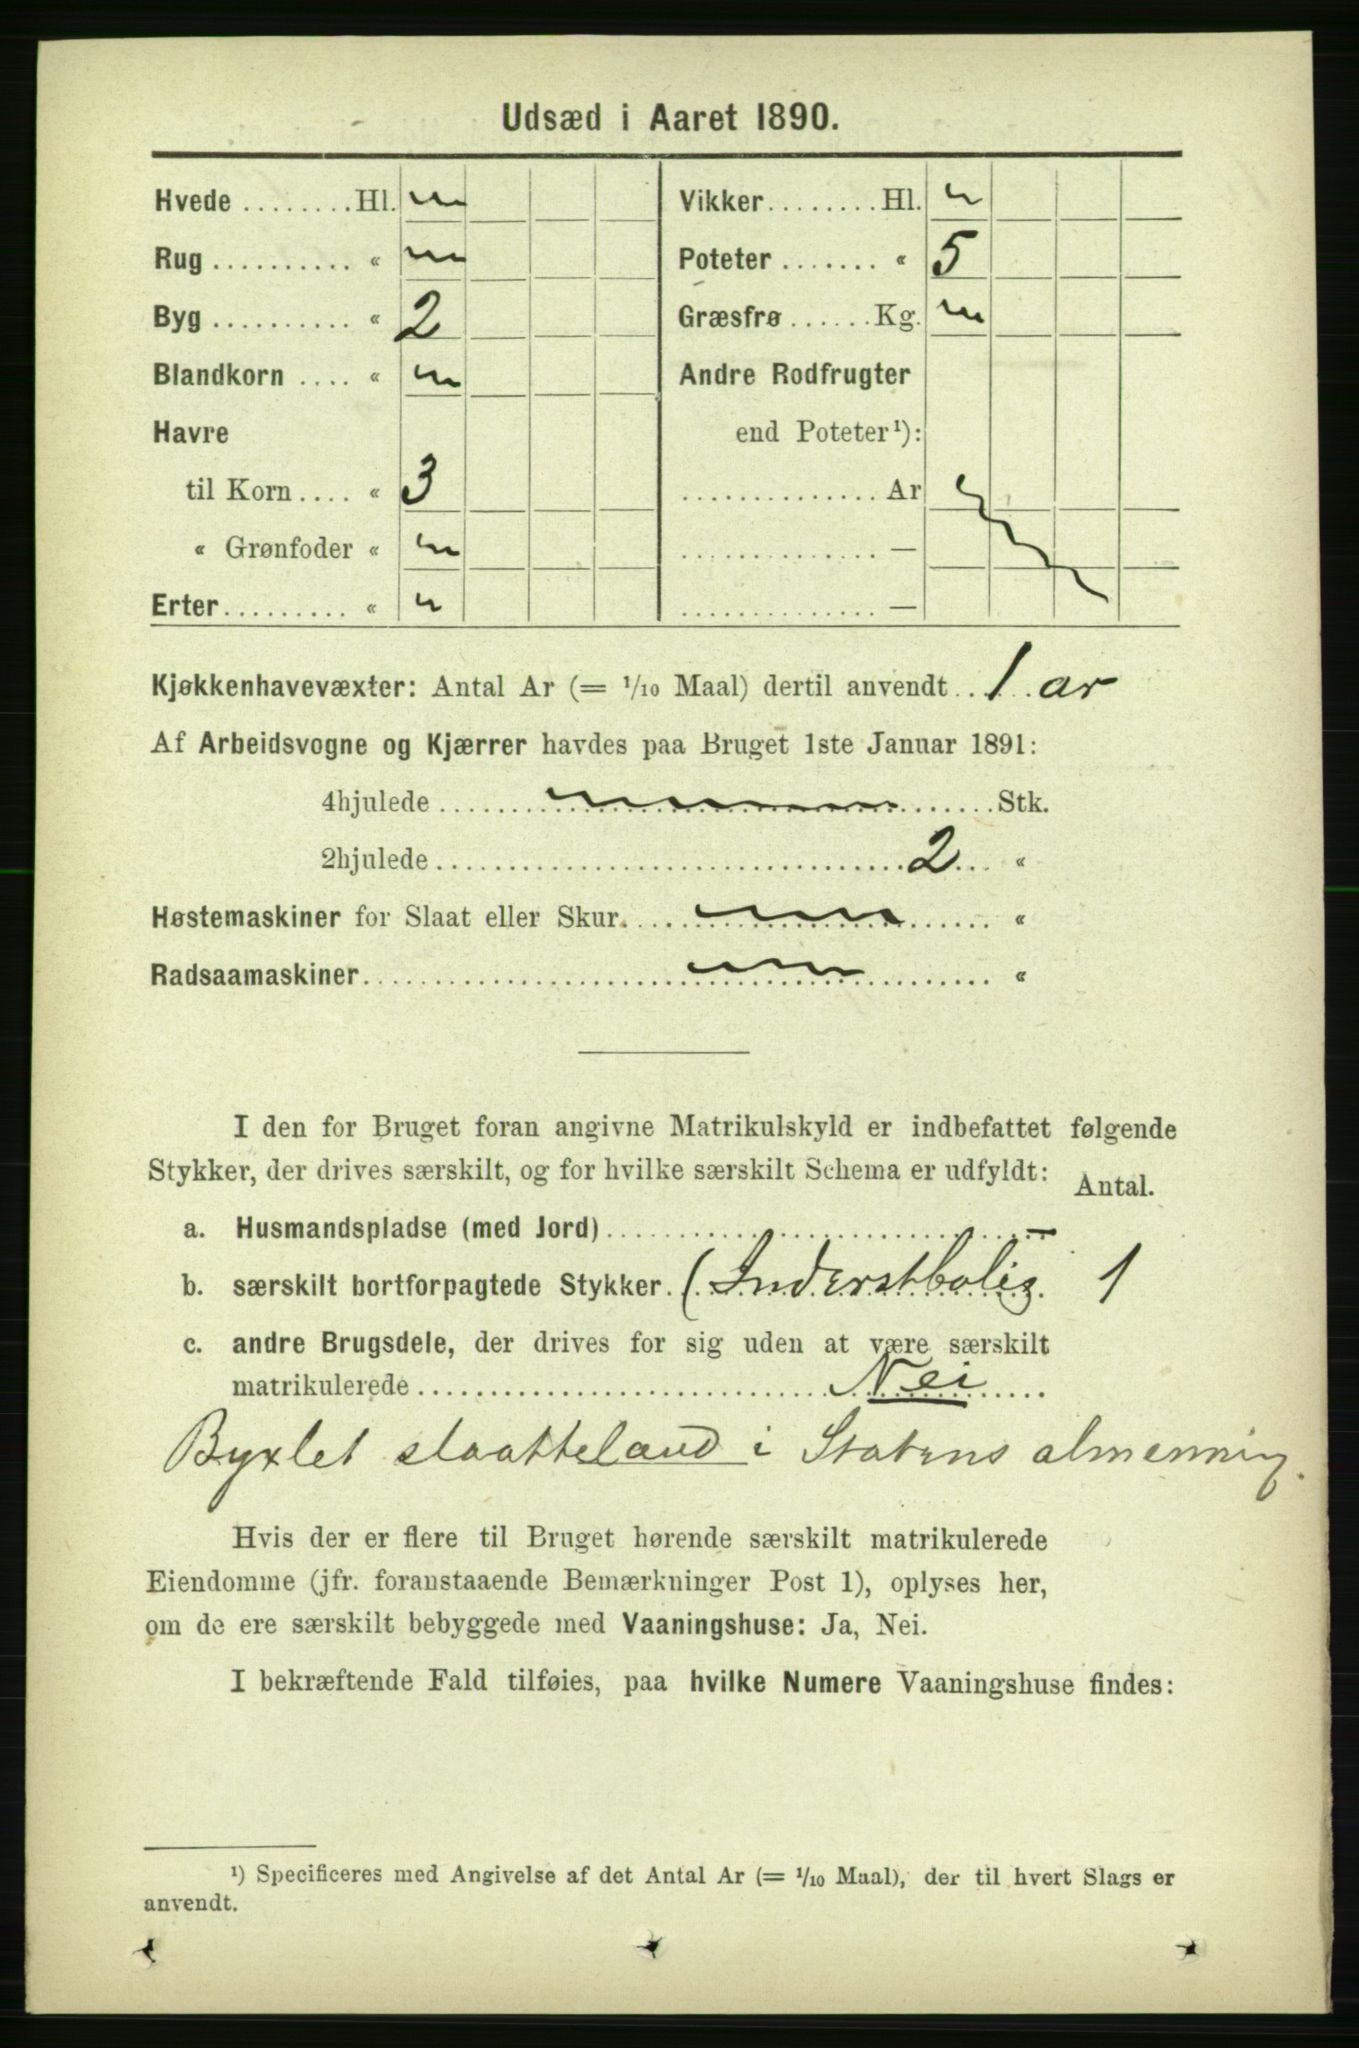 Udsæd i Aaret 1890.
Hvede ........ Hl.
Rug .......... «
Byg .......... « 2
Blandkorn .... «
Havre
til Korn .... « 3
« Grønfoder «
Erter ......... «
Vikker ........ Hl.
Poteter ....... « 5
Græsfrø ...... Kg.
Andre Rodfrugter
end Poteter ¹):
.............. Ar
.............. —
.............. —
Kjøkkenhavevæxter: Antal Ar (= 1/10 Maal) dertil anvendt .. 1 ar
Af Arbeidsvogne og Kjærrer havdes paa Bruget 1ste Januar 1891:
4hjulede ........ Stk.
2hjulede ........ 2 ... «
Høstemaskiner for Slaat eller Skur ........ «
Radsaamaskiner ........ «
I den for Bruget foran angivne Matrikulskyld er indbefattet følgende
Stykker, der drives særskilt, og for hvilke særskilt Schema er udfyldt: Antal.
a. Husmandspladse (med Jord) ........ —
b. særskilt bortforpagtede Stykker. (Inderstbolig. 1
c. andre Brugsdele, der drives for sig uden at være særskilt
matrikulerede ........ Nei ....
Byxlet slaatteland i Statens almenning.
Hvis der er flere til Bruget hørende særskilt matrikulerede
Eiendomme (jfr. foranstaaende Bemærkninger Post 1), oplyses her,
om de ere særskilt bebyggede med Vaaningshuse: Ja, Nei.
I bekræftende Fald tilføies, paa hvilke Numere Vaaningshuse findes:
¹) Specificeres med Angivelse af det Antal Ar (= 1/10 Maal), der til hvert Slags er
anvendt.